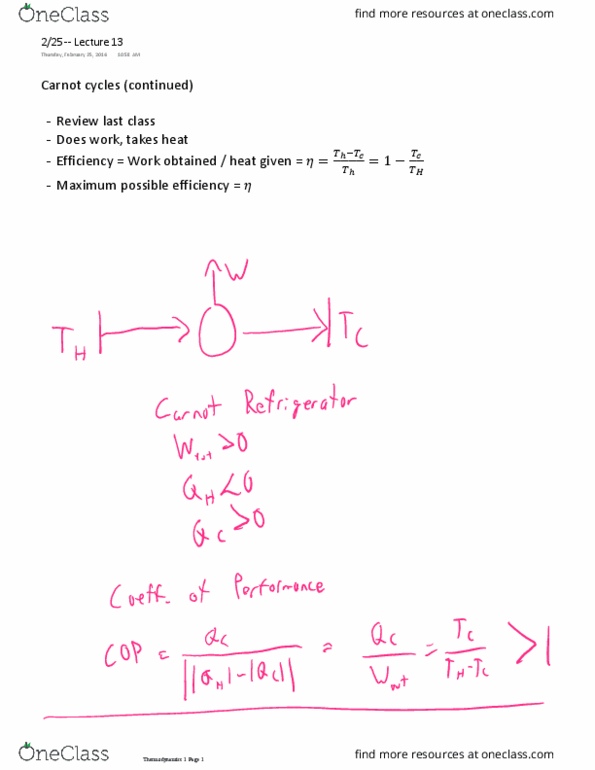 OneClass
find more resources at oneclass.com
2/25-- Lecture 13
Thursday, February 25, 2016
Carnot cycles (continued)
- Review last class
- Does work, takes heat
- Efficiency = Work obtained / heat given = η = (T_h−T_c)/T_h = 1 − T_c/T_H
- Maximum possible efficiency = η
W
T_H T_C
Carnot Refrigerator
W_tot >0
Q_H <0
Q_C >0
Coeff. of Performance
COP = Q_C / ||Q_H|-|Q_C|| = Q_C / W_net = T_C / (T_H-T_C) >1
OneClass
Thermodynamics 1 Page 1
find more resources at oneclass.com